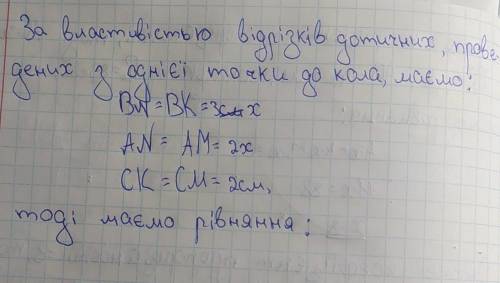 За властивістю відрізків дотичних, прове-
дених з однієї точки до кола, маємо:
BN = BK = 3x
AN = AM = 2x
CK = CM = 2см,
тоді маємо рівняння: